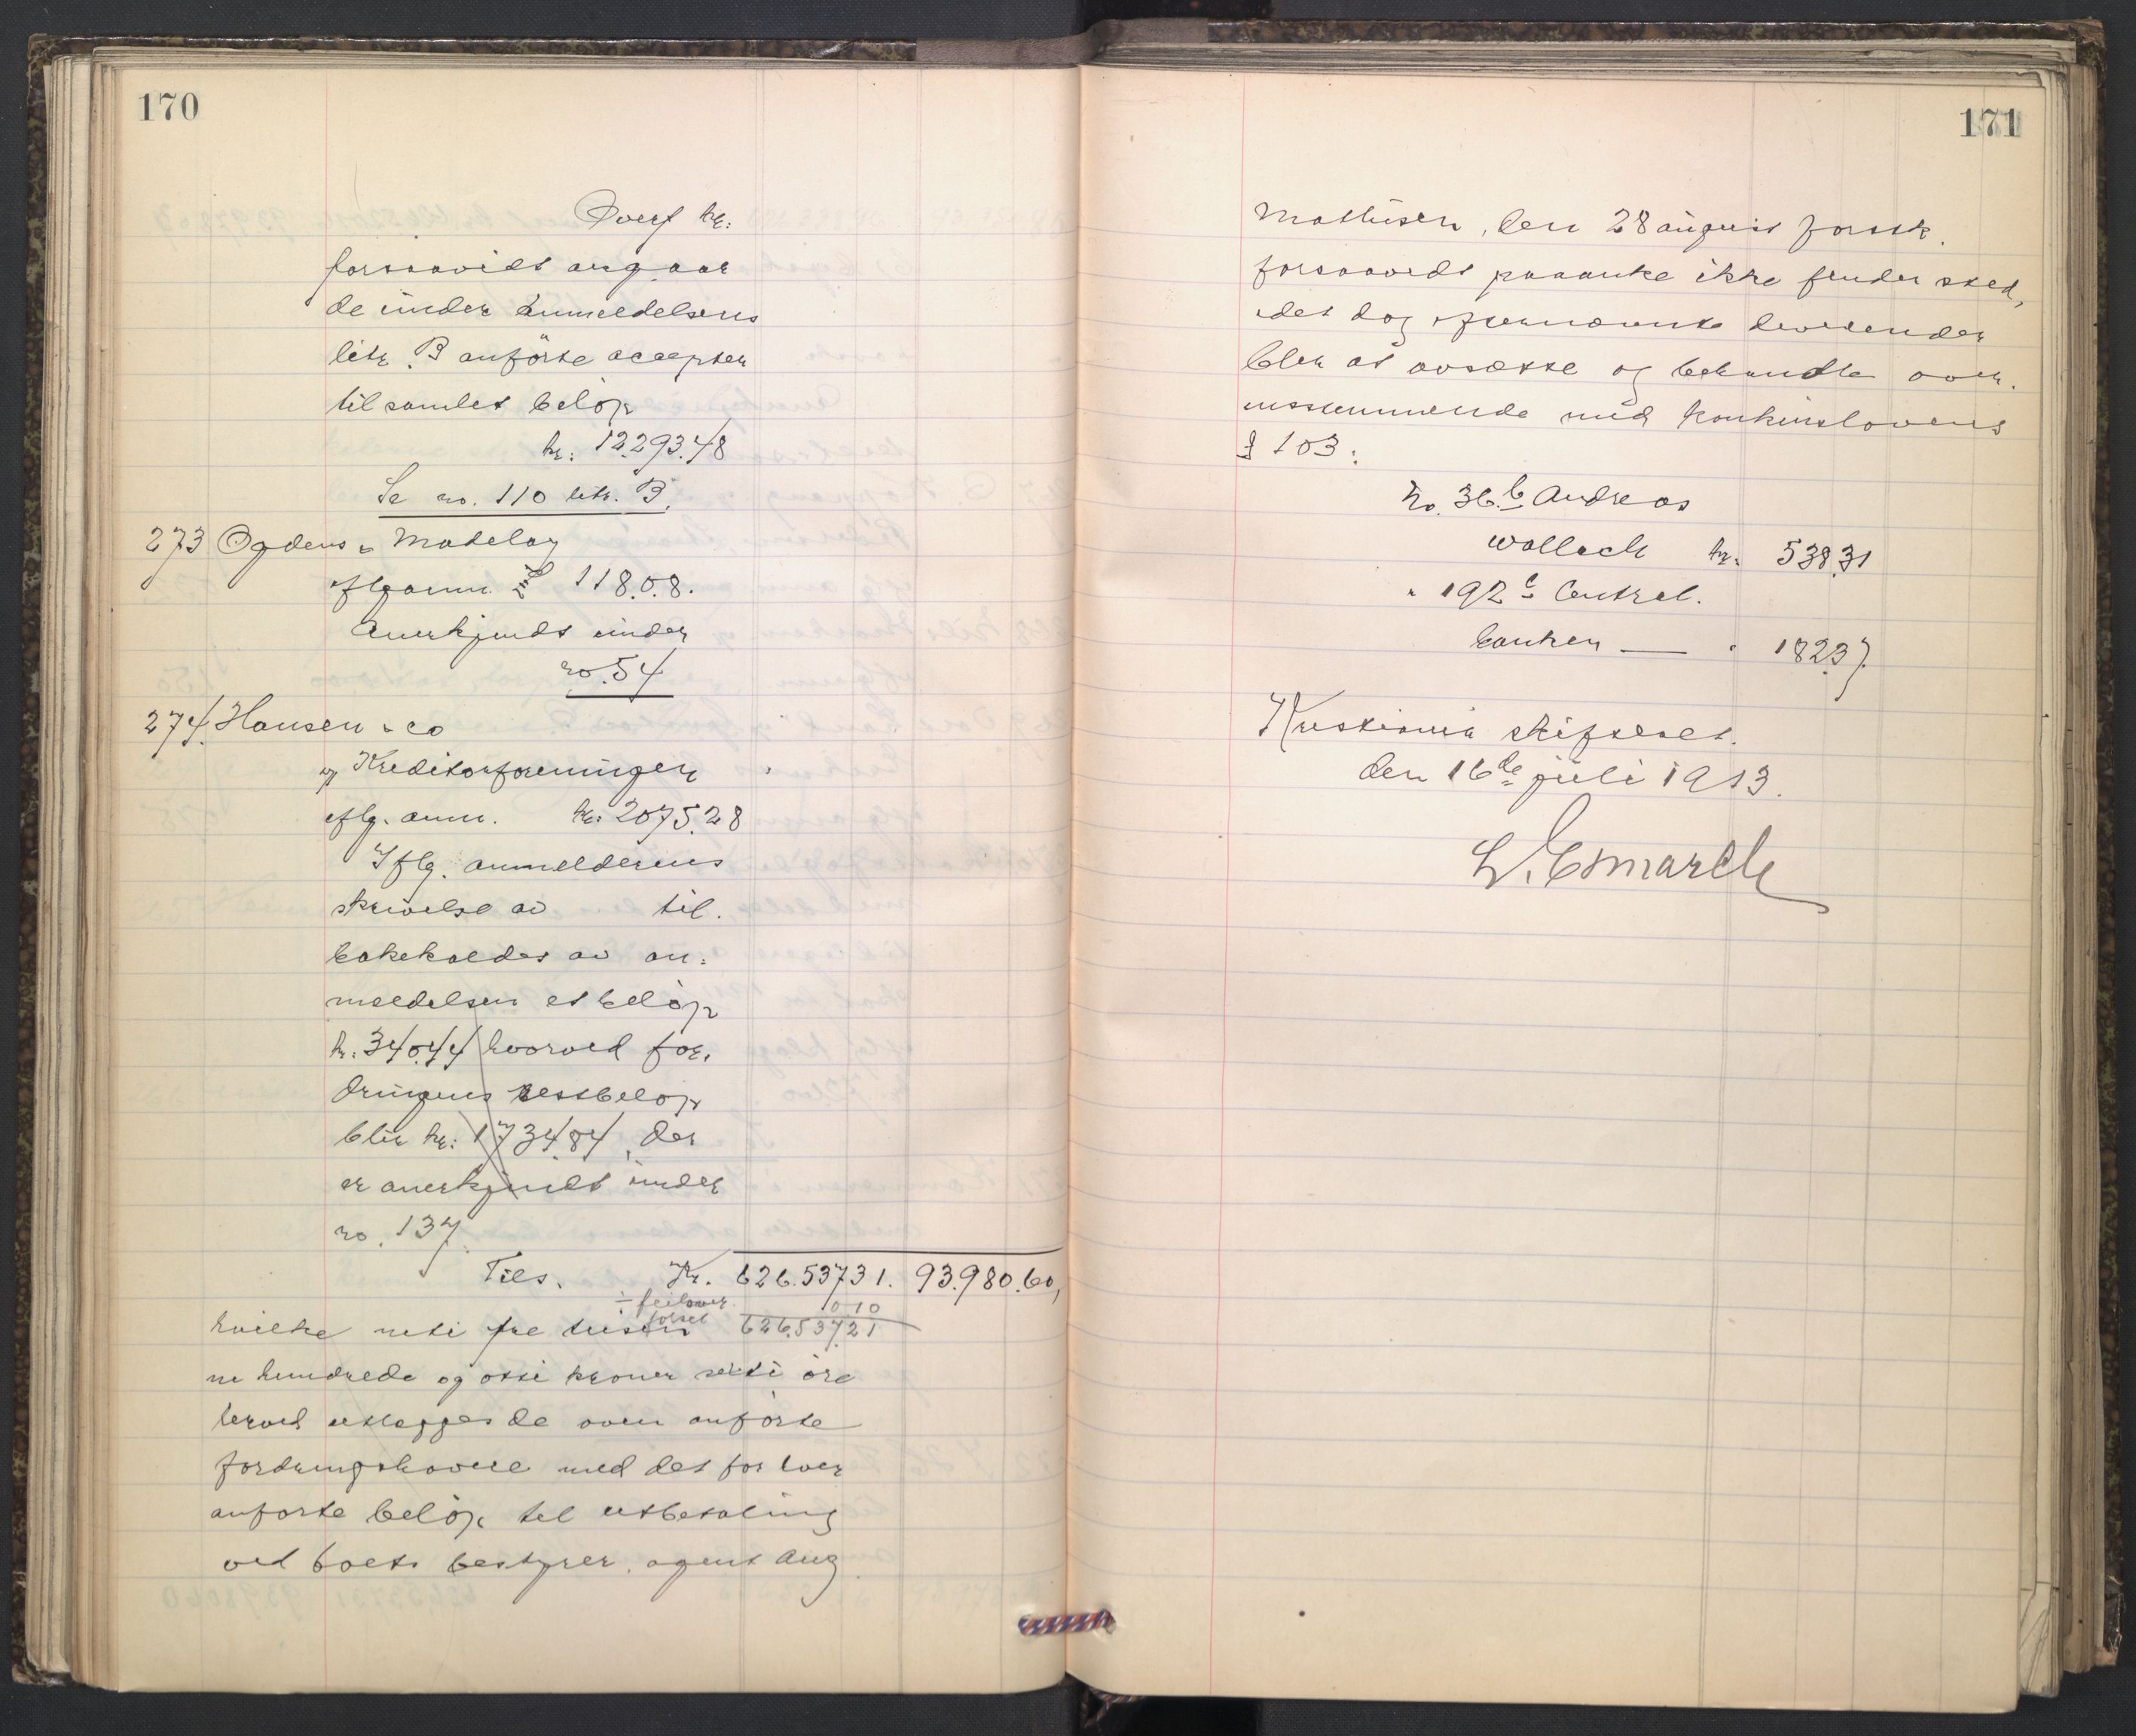 170
Overf kr:
forsaavidt angaar
de under anmeldelsens
litr. B anførte accepter
tilsamlet beløp
kr: 12.293.48
Se no. 110 litr. B.
273 Ogdens & Madeley
iflg anm. £ 118.0.8.
Anerkjendt under
no. 54
274. Hansen & co
v/ Kreditorforeningen
iflg. anm. kr: 2075.28
Iflg. anmelderens
skrivelse av til-
bakeholdes av an-
meldelsen et beløp
kr: 340.44 hvorved for-
dringens restbeløp
blir kr: 1734.84, der
er anerkjendt under
no. 137.
Tils. Kr. 626.537.31. 93.980.60,
÷ feilover 0 10
hvilke nitti tre tusen førsel 626.537.21
ni hundrede og otti kroner seksti øre
herved utlægges de oven anførte
fordringshavere med det for hver
anførte beløp til utbetaling
ved boets bestyrer, agent Aug
171
Mathisen, den 28 august førstk.
forsaavidt paaanke ikke finder sted,
idet dog efternævnte dividender
blir at avsætte og behandle over-
ensstemmende med konkurslovens
§ 103:
No. 36 b Andreas
Wallach kr: 538.31
" 192 c Central-
banken — " 182.37.
Kristiania skifteret.
den 16de juli 1913.
L. Esmarch